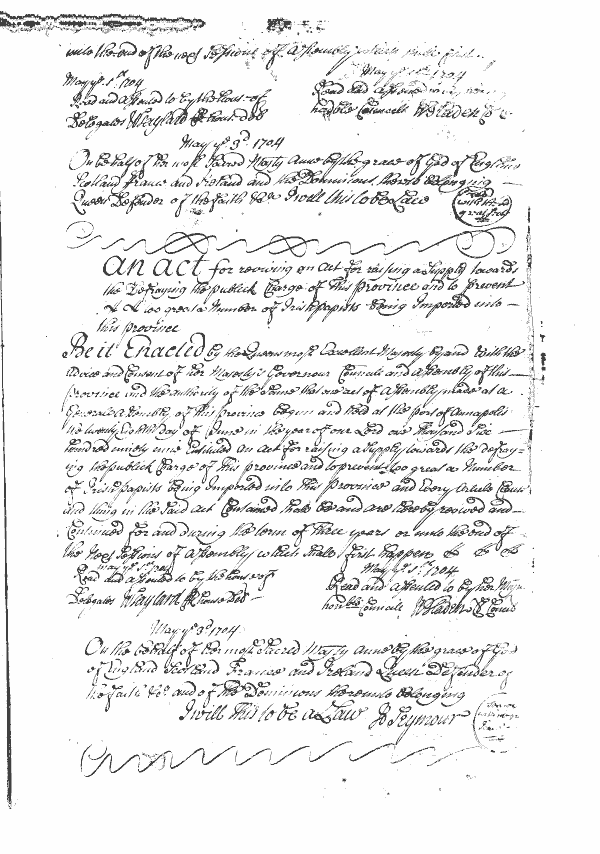 unto the end of the next Sessions of Assembly which shall first
May ye 1st 1704
Read and assented to by the house of
Delegates W Taylard Cl house Del
May ye 1st 1704
Read and assented
hon'ble Councell W Bladen Cl
May ye 3d. 1704
On behalf of her most Sacred Majty Anne by the grace of God of England
Scotland France and Ireland and the Dominions thereto belonging
Queen Defender of the faith &ca I will this to be Law
great Seal
An Act for reviving an Act for raising a Supply towards
the Defraying the publick Charge of this Province and to prevent
too great a Number of Irish papists being Imported into
this province
Be it Enacted by the Queens most Excellent Majesty by and with the
advice and Consent of her Majestys Governour Councell and Assembly of this
province and the authority of the Same that one act of Assembly made at a
Generall Assembly of this province begun and held at the port of Annapolis
the twenty Eighth day of June in the year of our Lord one thousand Six
hundred ninety nine Entituled an Act for raising a Supply towards the defray-
ing the publick Charge of this province and to prevent too great a Number
of Irish papists being Imported into this province and Every Article Clause
and thing in the Said Act Contained shall be and are thereby revived and
Continued for and during the term of three years or unto the end of
the next Sessions of Assembly which shall first happen &c &c &c
May ye 1st 1704
Read and assented to by the house of
Delegates W Taylard Cl house Del
May ye 1st 1704
Read and assented to by her Majtys
hon'ble Councell W Bladen Cl Councl
May ye 3d 1704
On the behalf of her most Sacred Majty Anne by the grace of God
of England Scotland France and Ireland Queen Defender of
the faith &ca and of the Dominions thereunto belonging
I will this to be a Law Jo Seymour